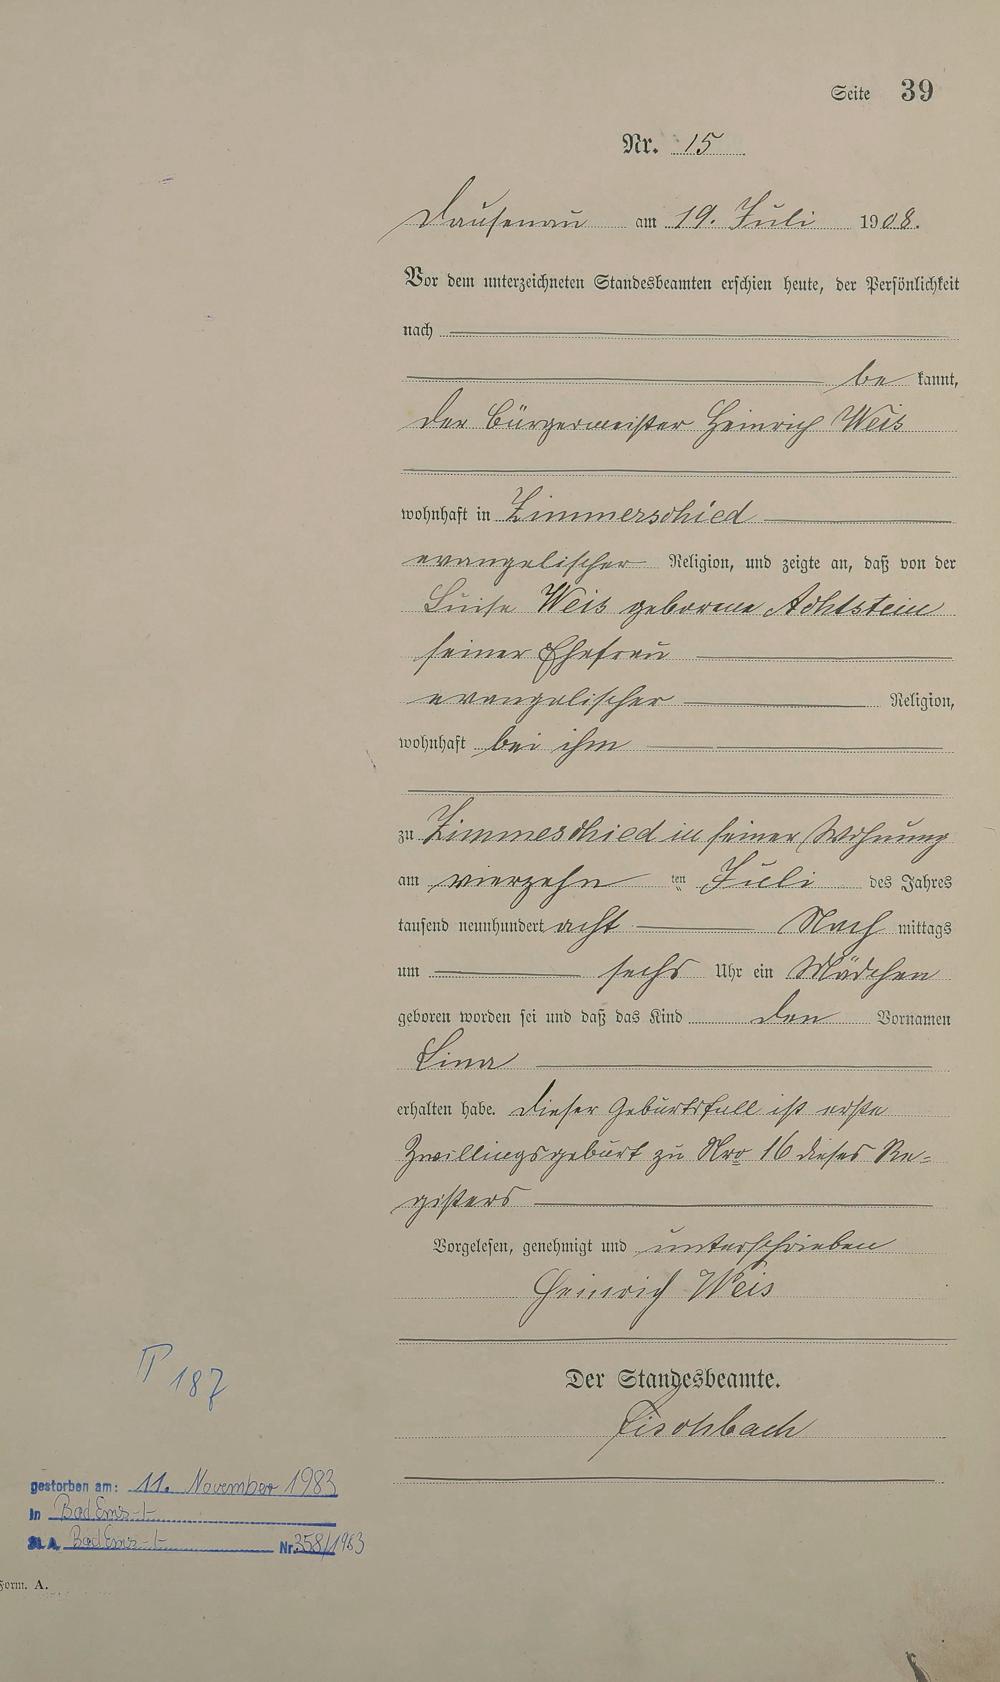 Seite 39
Nr. 15
Dausenau am 19. Juli 1908.
Vor dem unterzeichneten Standesbeamten erschien heute, der Persönlichkeit
nach
be kannt,
der Bürgermeister Heinrich Weis
wohnhaft in Zimmerschied
evangelischer Religion, und zeigte an, daß von der
Luise Weis geborene Achtstein
seiner Ehefrau
evangelischer Religion,
wohnhaft bei ihm
zu Zimmeschied in seiner Wohnung
am vierzehn ten Juli des Jahres
tausend neunhundert acht Nach mittags
um sechs Uhr ein Mädchen
geboren worden sei und daß das Kind den Vornamen
Lina
erhalten habe. Dieser Geburtsfall ist erste
Zwillingsgeburt zu Nro 16 dieses Re-
gisters
Vorgelesen, genehmigt und unterschrieben
Heinrich Weis
Der Standesbeamte.
Fischbach
187
gestorben am: 11. November 1983
in Bad Ems
St. A. Bad Ems Nr. 358/1983
Form. A.